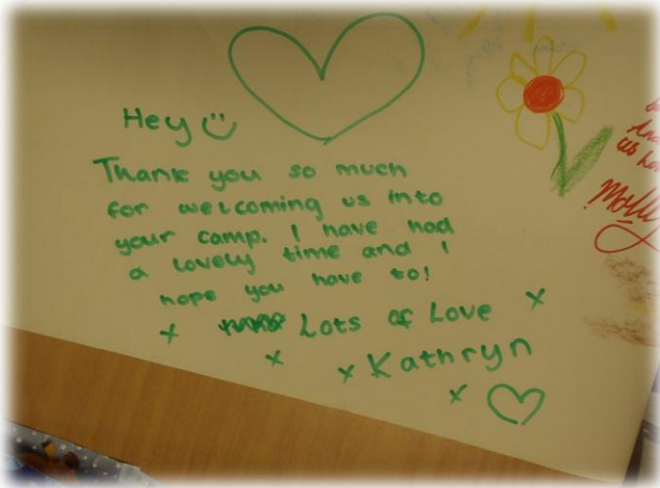 Hey
Thank you so much
for welcoming us into
your camp. I have had
a lovely time and I
hope you have to!
Lots of Love
x
x
x
x Kathryn
x
Molly